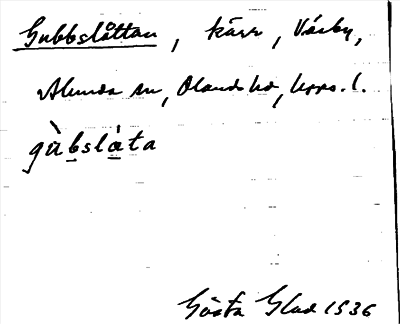 Gubbslåttan, kärr, Väsby,
Alunda sn, Olands hd, Upps. l.
gùbslåta
Gösta Glad 1936